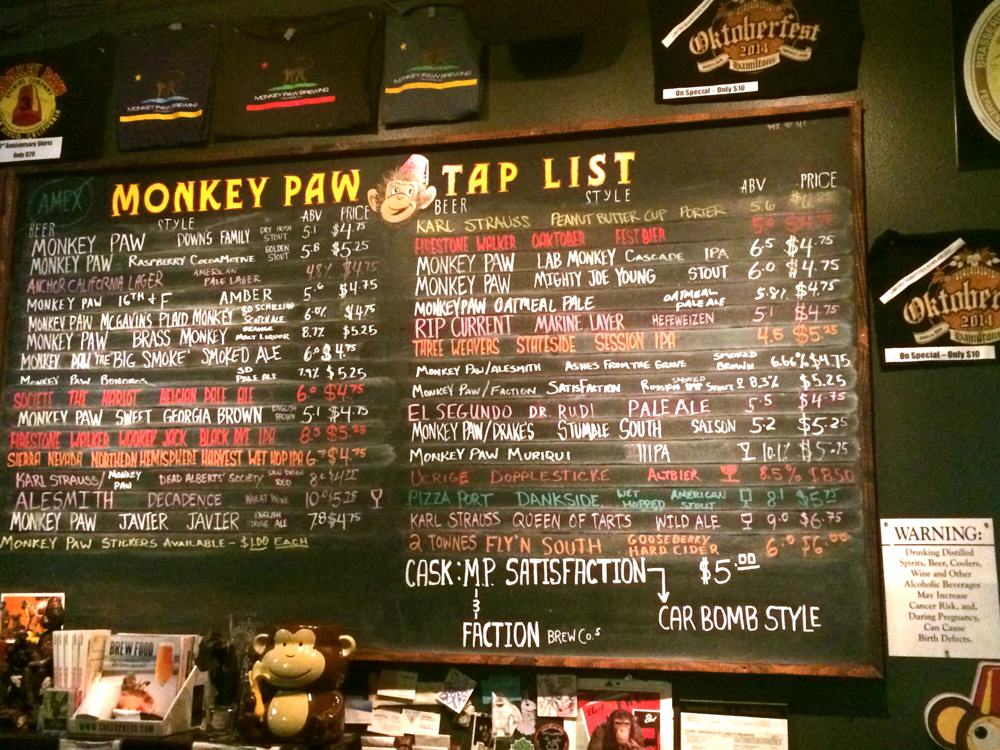 Oktoberfest
2014
Hamiltons
On Special – Only $10
MONKEY PAW BREWING
MONKEY PAW BREWING
MONKEY PAW BREWING
Anniversary Shirts
Only $20
AMEX
MONKEY PAW TAP LIST
BEER STYLE ABV PRICE
MONKEY PAW DOWNS FAMILY DRY IRISH STOUT 5.1 $4.75
MONKEY PAW RASPBERRY COCOAMOTIVE GOLDEN STOUT 5.8 $5.25
ANCHOR CALIFORNIA LAGER AMERICAN PALE LAGER 4.8% $4.75
MONKEY PAW 16TH & F AMBER 5.6 $4.75
MONKEY PAW MCGAVINS PLAID MONKEY 80 SCHILLING SCOTCH ALE 6.0% $4.75
MONKEY PAW BRASS MONKEY ORANGE MALT LIQUOR 8.7% $5.25
MONKEY PAW THE "BIG SMOKE" SMOKED ALE 6.0 $4.75
MONKEY PAW BONOBOS SD PALE ALE 7.4% $5.25
SOCIETE THE HARLOT BELGIAN PALE ALE 6.0 $4.75
MONKEY PAW SWEET GEORGIA BROWN ENGLISH BROWN 5.1 $4.75
FIRESTONE WALKER WOOKEY JACK BLACK RYE IPA 8.3 $5.25
SIERRA NEVADA NORTHERN HEMISPHERE HARVEST WET HOP IPA 6.7 $4.75
KARL STRAUSS/MONKEY PAW DEAD ALBERTS' SOCIETY SAN DIEGO RED
ALESMITH DECADENCE WHEAT WINE 10.0 $5.25
MONKEY PAW JAVIER JAVIER ENGLISH STRONG ALE 7.8 $4.75
MONKEY PAW STICKERS AVAILABLE - $1.00 EACH
BEER STYLE ABV PRICE
KARL STRAUSS PEANUT BUTTER CUP PORTER 5.6
FIRESTONE WALKER OAKTOBER FESTBIER
MONKEY PAW LAB MONKEY CASCADE IPA 6.5 $4.75
MONKEY PAW MIGHTY JOE YOUNG STOUT 6.0 $4.75
MONKEYPAW OATMEAL PALE OATMEAL PALE ALE 5.8% $4.75
RIP CURRENT MARINE LAYER HEFEWEIZEN 5.1 $4.75
THREE WEAVERS STATESIDE SESSION IPA 4.5 $5.25
MONKEY PAW/ALESMITH ASHES FROM THE GROVE SMOKED BROWN 6.66% $4.75
MONKEY PAW/FACTION SATISFACTION SMOKED RUSSIAN IMP STOUT 8.3% $5.25
EL SEGUNDO DR. RUDI PALE ALE 5.5 $4.75
MONKEY PAW/DRAKE'S STUMBLE SOUTH SAISON 5.2 $5.25
MONKEY PAW MURIQUI IIIPA 10.1% $5.25
UERIGE DOPPLESTICKE ALTBIER 8.5% $8.50
PIZZA PORT DANKSIDE WET HOPPED AMERICAN STOUT 8.1 $5.75
KARL STRAUSS QUEEN OF TARTS WILD ALE 9.0 $6.75
2 TOWNES FLY'N SOUTH GOOSEBERRY HARD CIDER 6.0 $6.00
CASK: M.P. SATISFACTION $5.00
&
FACTION BREW CO.S
CAR BOMB STYLE
Oktoberfest
2014
On Special – Only $10
WARNING:
Drinking Distilled
Spirits, Beer, Coolers,
Wine and Other
Alcoholic Beverages
May Increase
Cancer Risk, and,
During Pregnancy,
Can Cause
Birth Defects.
BREW FOOD